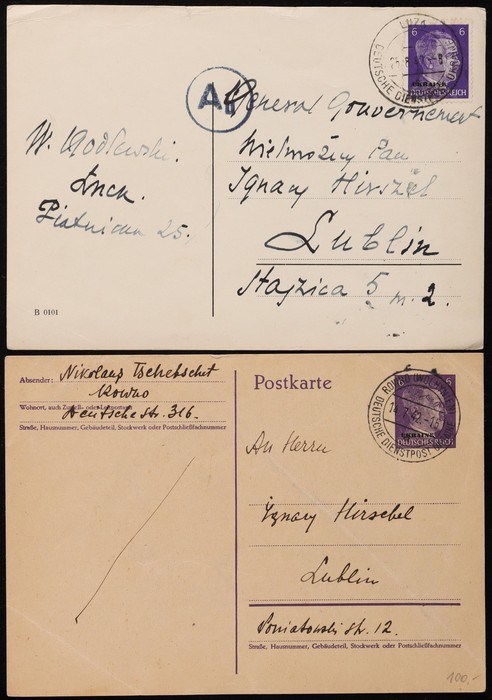 LUZK
DEUTSCHE DIENSTPOST UKRAINE
6 6
UKRAINE
DEUTSCHES REICH
General Gouvernement
W. Godlewski.
Łuck.
Piatnicka 25.
Wielmożny Pan
Ignacy Hirszel
Lublin
Staszica 5 m. 2.
B 0101
Absender: Nikolaus
Rowno
Wohnort, auch Zustell- oder Leitpostamt
Deutsche Str. 316.
Straße, Hausnummer, Gebäudeteil, Stockwerk oder Postschließfachnummer
Postkarte
6
ROWNO
DEUTSCHE DIENSTPOST
UKRAINE
DEUTSCHES REICH
An Herrn
Ignacy Hirschel
Lublin
Poniatowski str. 12.
Straße, Hausnummer, Gebäudeteil, Stockwerk oder Postschließfachnummer
100,-